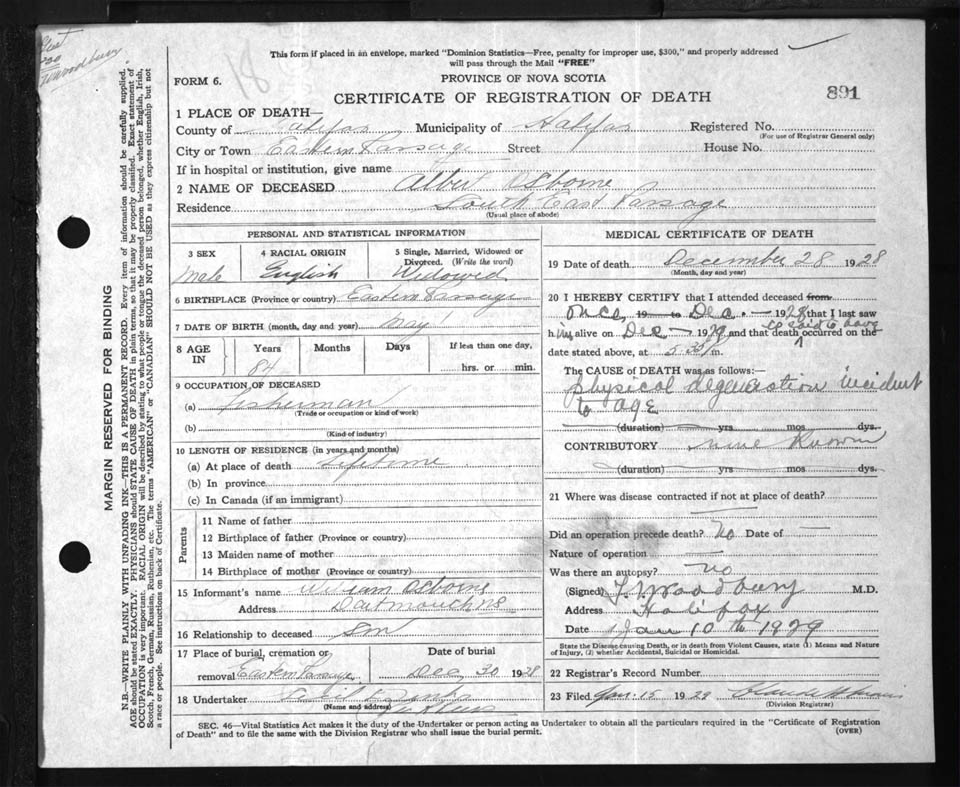 Woodbury
This form if placed in an envelope, marked "Dominion Statistics—Free, penalty for improper use, $300," and properly addressed
will pass through the Mail "FREE"
FORM 6.
PROVINCE OF NOVA SCOTIA
CERTIFICATE OF REGISTRATION OF DEATH
891
1 PLACE OF DEATH—
County of Halifax Municipality of Halifax Registered No.
(For use of Registrar General only)
City or Town Eastern Passage Street House No.
If in hospital or institution, give name
2 NAME OF DECEASED Albert Osborne
Residence South East Passage
(Usual place of abode)
PERSONAL AND STATISTICAL INFORMATION
3 SEX Male
4 RACIAL ORIGIN English
5 Single, Married, Widowed or Divorced. (Write the word) Widowed
6 BIRTHPLACE (Province or country) Eastern Passage
7 DATE OF BIRTH (month, day and year) May 1
8 AGE IN Years Months Days If less than one day,
84 hrs. or min.
9 OCCUPATION OF DECEASED
(a) fisherman
(Trade or occupation or kind of work)
(b)
(Kind of industry)
10 LENGTH OF RESIDENCE (in years and months)
(a) At place of death Lifetime
(b) In province
(c) In Canada (if an immigrant)
Parents
11 Name of father
12 Birthplace of father (Province or country)
13 Maiden name of mother
14 Birthplace of mother (Province or country)
15 Informant's name William Osborne
Address Dartmouth NS
16 Relationship to deceased Son
17 Place of burial, cremation or removal Eastern Passage
Date of burial Dec 30 1928
18 Undertaker
(Name and address)
MEDICAL CERTIFICATE OF DEATH
19 Date of death December 28 1928
(Month, day and year)
20 I HEREBY CERTIFY that I attended deceased from
once 19 to Dec. — 1928 that I last saw
him alive on Dec — 1929 and that death is said to have occurred on the
date stated above, at 5.30 m.
The CAUSE OF DEATH was as follows:—
physical degeneration incident
to age
(duration) yrs mos dys.
CONTRIBUTORY none known
(duration) yrs mos dys.
21 Where was disease contracted if not at place of death?
Did an operation precede death? No Date of —
Nature of operation —
Was there an autopsy? No
(Signed) Woodbury M.D.
Address Halifax
Date Jan 10th 1929
State the Disease causing Death, or in death from Violent Causes, state (1) Means and Nature
of Injury, (2) whether Accidental, Suicidal or Homicidal.
22 Registrar's Record Number
23 Filed Jan 15 1929
(Division Registrar)
SEC. 46—Vital Statistics Act makes it the duty of the Undertaker or person acting as Undertaker to obtain all the particulars required in the "Certificate of Registration
of Death" and to file the same with the Division Registrar who shall issue the burial permit.
(OVER)
MARGIN RESERVED FOR BINDING
N.B.—WRITE PLAINLY WITH UNFADING INK—THIS IS A PERMANENT RECORD. Every item of information should be carefully supplied.
AGE should be stated EXACTLY. PHYSICIANS should STATE CAUSE OF DEATH in plain terms, so that it may be properly classified. Exact statement of
OCCUPATION is very important. RACIAL ORIGIN will be described by stating to what people or tongue the deceased person belonged, whether English, Irish,
Scotch, French, German, Russian, Ruthenian, etc. The terms "AMERICAN" or "CANADIAN" SHOULD NOT BE USED as they express citizenship but not
a race or people. See instructions on back of Certificate.